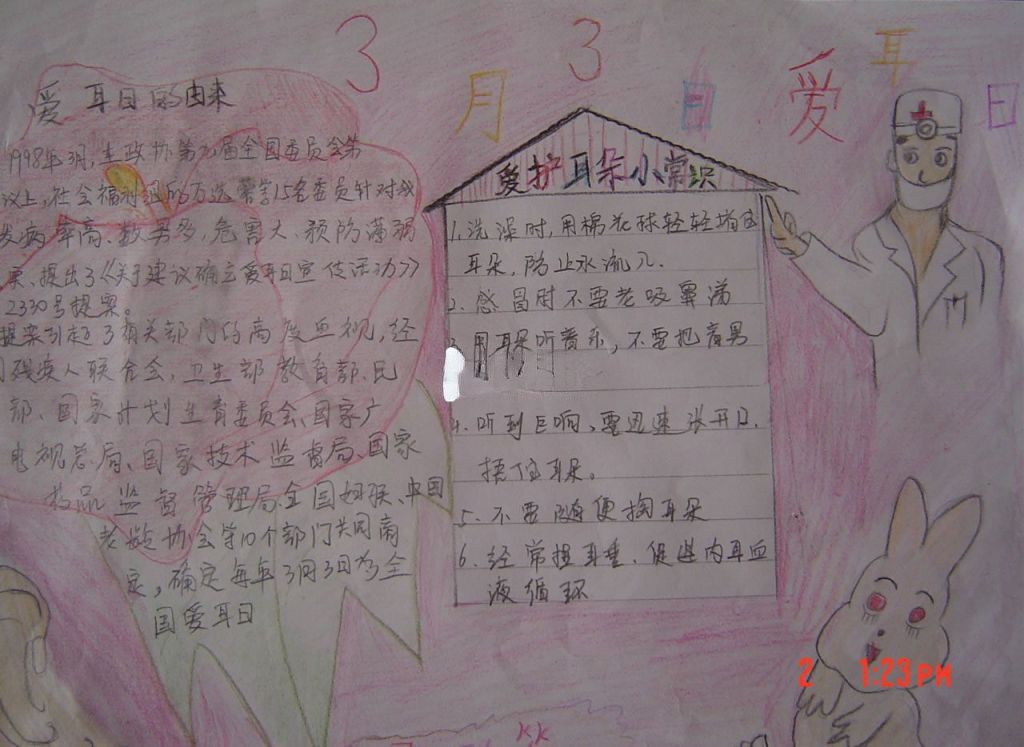 3月3日爱耳日
爱耳日的由来
1998年3月,在政协第九届全国委员会第
议上,社会福利组的万选蓉等15名委员针对我
发病率高、数男多,危害大,预防薄弱
果、提出了《关于建议确立爱耳日宣传活动》
2330号提案。
提案引起了有关部门的高度重视,经
残疾人联合会,卫生部教育部、民
部、国家计划生育委员会、国家广
电视总局、国家技术监督局、国家
药品监督管理局全国妇联、中国
老龄协会等10个部门共同商
定,确定每年3月3日为全
国爱耳日
爱护耳朵小常识
1.洗澡时,用棉花球轻轻堵
耳朵,防止水流入.
2.感冒时不要老吸鼻涕
3.用耳朵听音乐,不要把音
4.听到巨响、要迅速张开口.
捂住耳朵。
5.不要随便掏耳朵
6.经常捏耳垂、促进内耳血
液循环
2 1:23PM